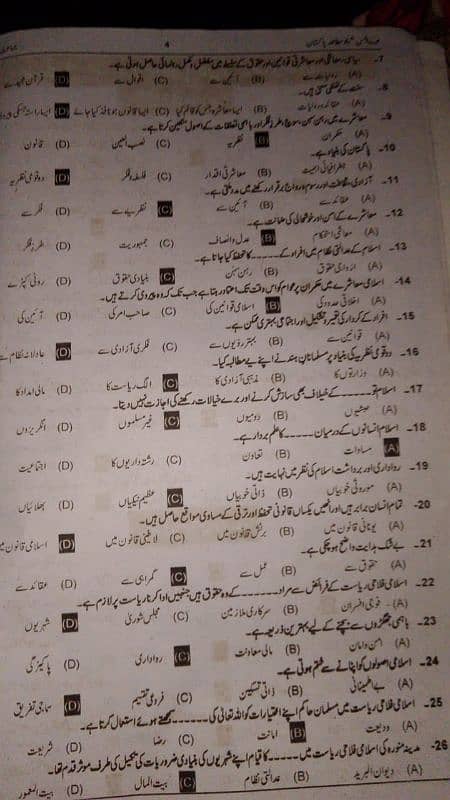 4
7- سیاسی، معاشی اور معاشرتی قوانین اور حقوق کے سلسلے میں مفصل و مکمل رہنمائی حاصل ہوتی ہے۔
(A) روایات سے (B) آئین سے (C) اقوال سے (D) قرآن مجید سے
8- سنت کے لفظی معنی ہیں۔
(A) عقائد و روایات (B) ایسا معاشرہ جس کو قائم کیا جائے (C) ایسا قانون جو نافذ کیا جائے (D) ایسا راستہ جس کی پیروی
9- معاشرے میں رہن سہن، سوچ، طرز فکر اور باہمی تعلقات کے اصول متعین کرتا ہے۔
(A) حکمران (B) نظریہ (C) نصب العین (D) قانون
10- پاکستان کی بنیاد ہے۔
(A) جغرافیائی اہمیت (B) معاشرتی اقدار (C) فلسفہ و فکر (D) دو قومی نظریہ
11- آزادی، ثقافت اور رسم و رواج برقرار رکھنے میں مدد ملتی ہے۔
(A) عقائد سے (B) آئین سے (C) نظریے سے (D) فکر سے
12- معاشرے کے امن اور خوشحالی کی ضمانت ہے۔
(A) معاشی استحکام (B) عدل و انصاف (C) جمہوریت (D) طرز فکر
13- اسلام کے عدالتی نظام میں افراد کے ۔۔۔۔۔ کا تحفظ کیا جاتا ہے۔
(A) ازدواجی حقوق (B) رہن سہن (C) بنیادی حقوق (D) روٹی کپڑے
14- اسلامی معاشرے میں حکمران پر عوام کو اس وقت تک اعتماد رہتا ہے جب تک کہ وہ پیروی کرتے ہیں۔
(A) اخلاقی حدود کی (B) اسلامی قوانین کی (C) صاحب امر کی (D) آئین کی
15- افراد کے کردار کی تعمیر و تشکیل اور اجتماعی بہتری ممکن ہے۔
(A) قوانین سے (B) بہتر رویوں سے (C) فکری آزادی سے (D) عادلانہ نظام سے
16- دو قومی نظریہ کی بنیاد پر مسلمانان ہند نے اپنے لیے مطالبہ کیا۔
(A) وزارتوں کا (B) مذہبی آزادی کا (C) الگ ریاست کا (D) مالی امداد کا
17- اسلام تو ۔۔۔۔۔ کے خلاف بھی سازش کرنے اور برے خیالات رکھنے کی اجازت نہیں دیتا۔
(A) حبشیوں (B) رومیوں (C) غیر مسلموں (D) انگریزوں
18- اسلام انسانوں کے درمیان ۔۔۔۔۔ کا علم بردار ہے۔
(A) مساوات (B) تعاون (C) رشتہ داریوں کا (D) اجتماعیت
19- رواداری اور برداشت اسلام کی نظر میں نہایت ہیں۔
(A) موروثی خوبیاں (B) ذاتی خوبیاں (C) عظیم نیکیاں (D) بھلائیاں
20- تمام انسان برابر ہیں اور انھیں یکساں قانونی تحفظ اور ترقی کے مساوی مواقع حاصل ہیں۔
(A) یونانی قانون میں (B) برٹش قانون میں (C) لاطینی قانون میں (D) اسلامی قانون میں
21- بے شک ہدایت واضح ہو چکی ہے۔
(A) حقوق سے (B) عمل سے (C) گمراہی سے (D) عقائد سے
22- اسلامی فلاحی ریاست کے فرائض سے مراد ۔۔۔۔۔ کے وہ حقوق ہیں جنہیں ادا کرنا ریاست پر لازم ہے۔
(A) فوجی افسران (B) سرکاری ملازمین (C) مجلس شوریٰ (D) شہریوں
23- باہمی جھگڑوں سے بچنے کے لیے بہترین ذریعہ ہے۔
(A) امن و امان (B) مالی معاونت (C) رواداری (D) پاکیزگی
24- اسلامی اصولوں کو اپنانے سے ختم ہوتی ہے۔
(A) بے اطمینانی (B) ذاتی تسکین (C) فردعی تقسیم (D) سماجی تفریق
25- اسلامی فلاحی ریاست میں مسلمان حاکم اپنے اختیارات کو اللہ تعالیٰ کی ۔۔۔۔۔ سمجھتے ہوئے استعمال کرتا ہے۔
(A) ودیعت (B) امانت (C) رضا (D) شریعت
26- مدینہ منورہ کی اسلامی فلاحی ریاست میں ۔۔۔۔۔ کا قیام اپنے شہریوں کی بنیادی ضروریات کی تکمیل کی طرف موثر قدم تھا۔
(A) دیوان البرید (B) عدالتی نظام (C) بیت المال (D) بیت المعمور